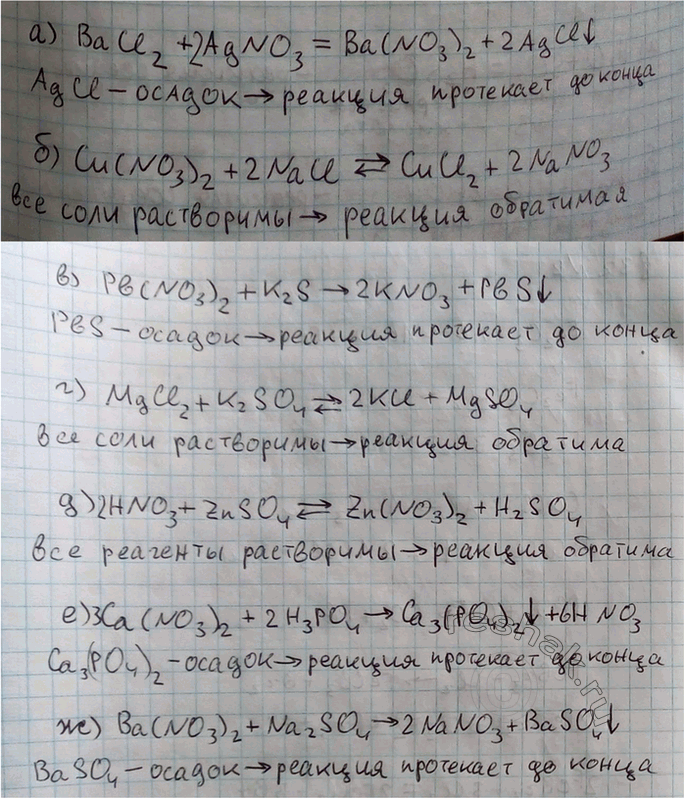 а) BaCl₂ + 2AgNO₃ = Ba(NO₃)₂ + 2AgCl↓
AgCl – осадок → реакция протекает до конца
б) Cu(NO₃)₂ + 2NaCl ⇄ CuCl₂ + 2NaNO₃
все соли растворимы → реакция обратимая
в) Pb(NO₃)₂ + K₂S → 2KNO₃ + PbS↓
PbS – осадок → реакция протекает до конца
г) MgCl₂ + K₂SO₄ ⇄ 2KCl + MgSO₄
все соли растворимы → реакция обратима
д) 2HNO₃ + ZnSO₄ ⇄ Zn(NO₃)₂ + H₂SO₄
все реагенты растворимы → реакция обратима
е) 3Ca(NO₃)₂ + 2H₃PO₄ → Ca₃(PO₄)₂↓ + 6HNO₃
Ca₃(PO₄)₂ – осадок → реакция протекает до конца
же) Ba(NO₃)₂ + Na₂SO₄ → 2NaNO₃ + BaSO₄↓
BaSO₄ – осадок → реакция протекает до конца